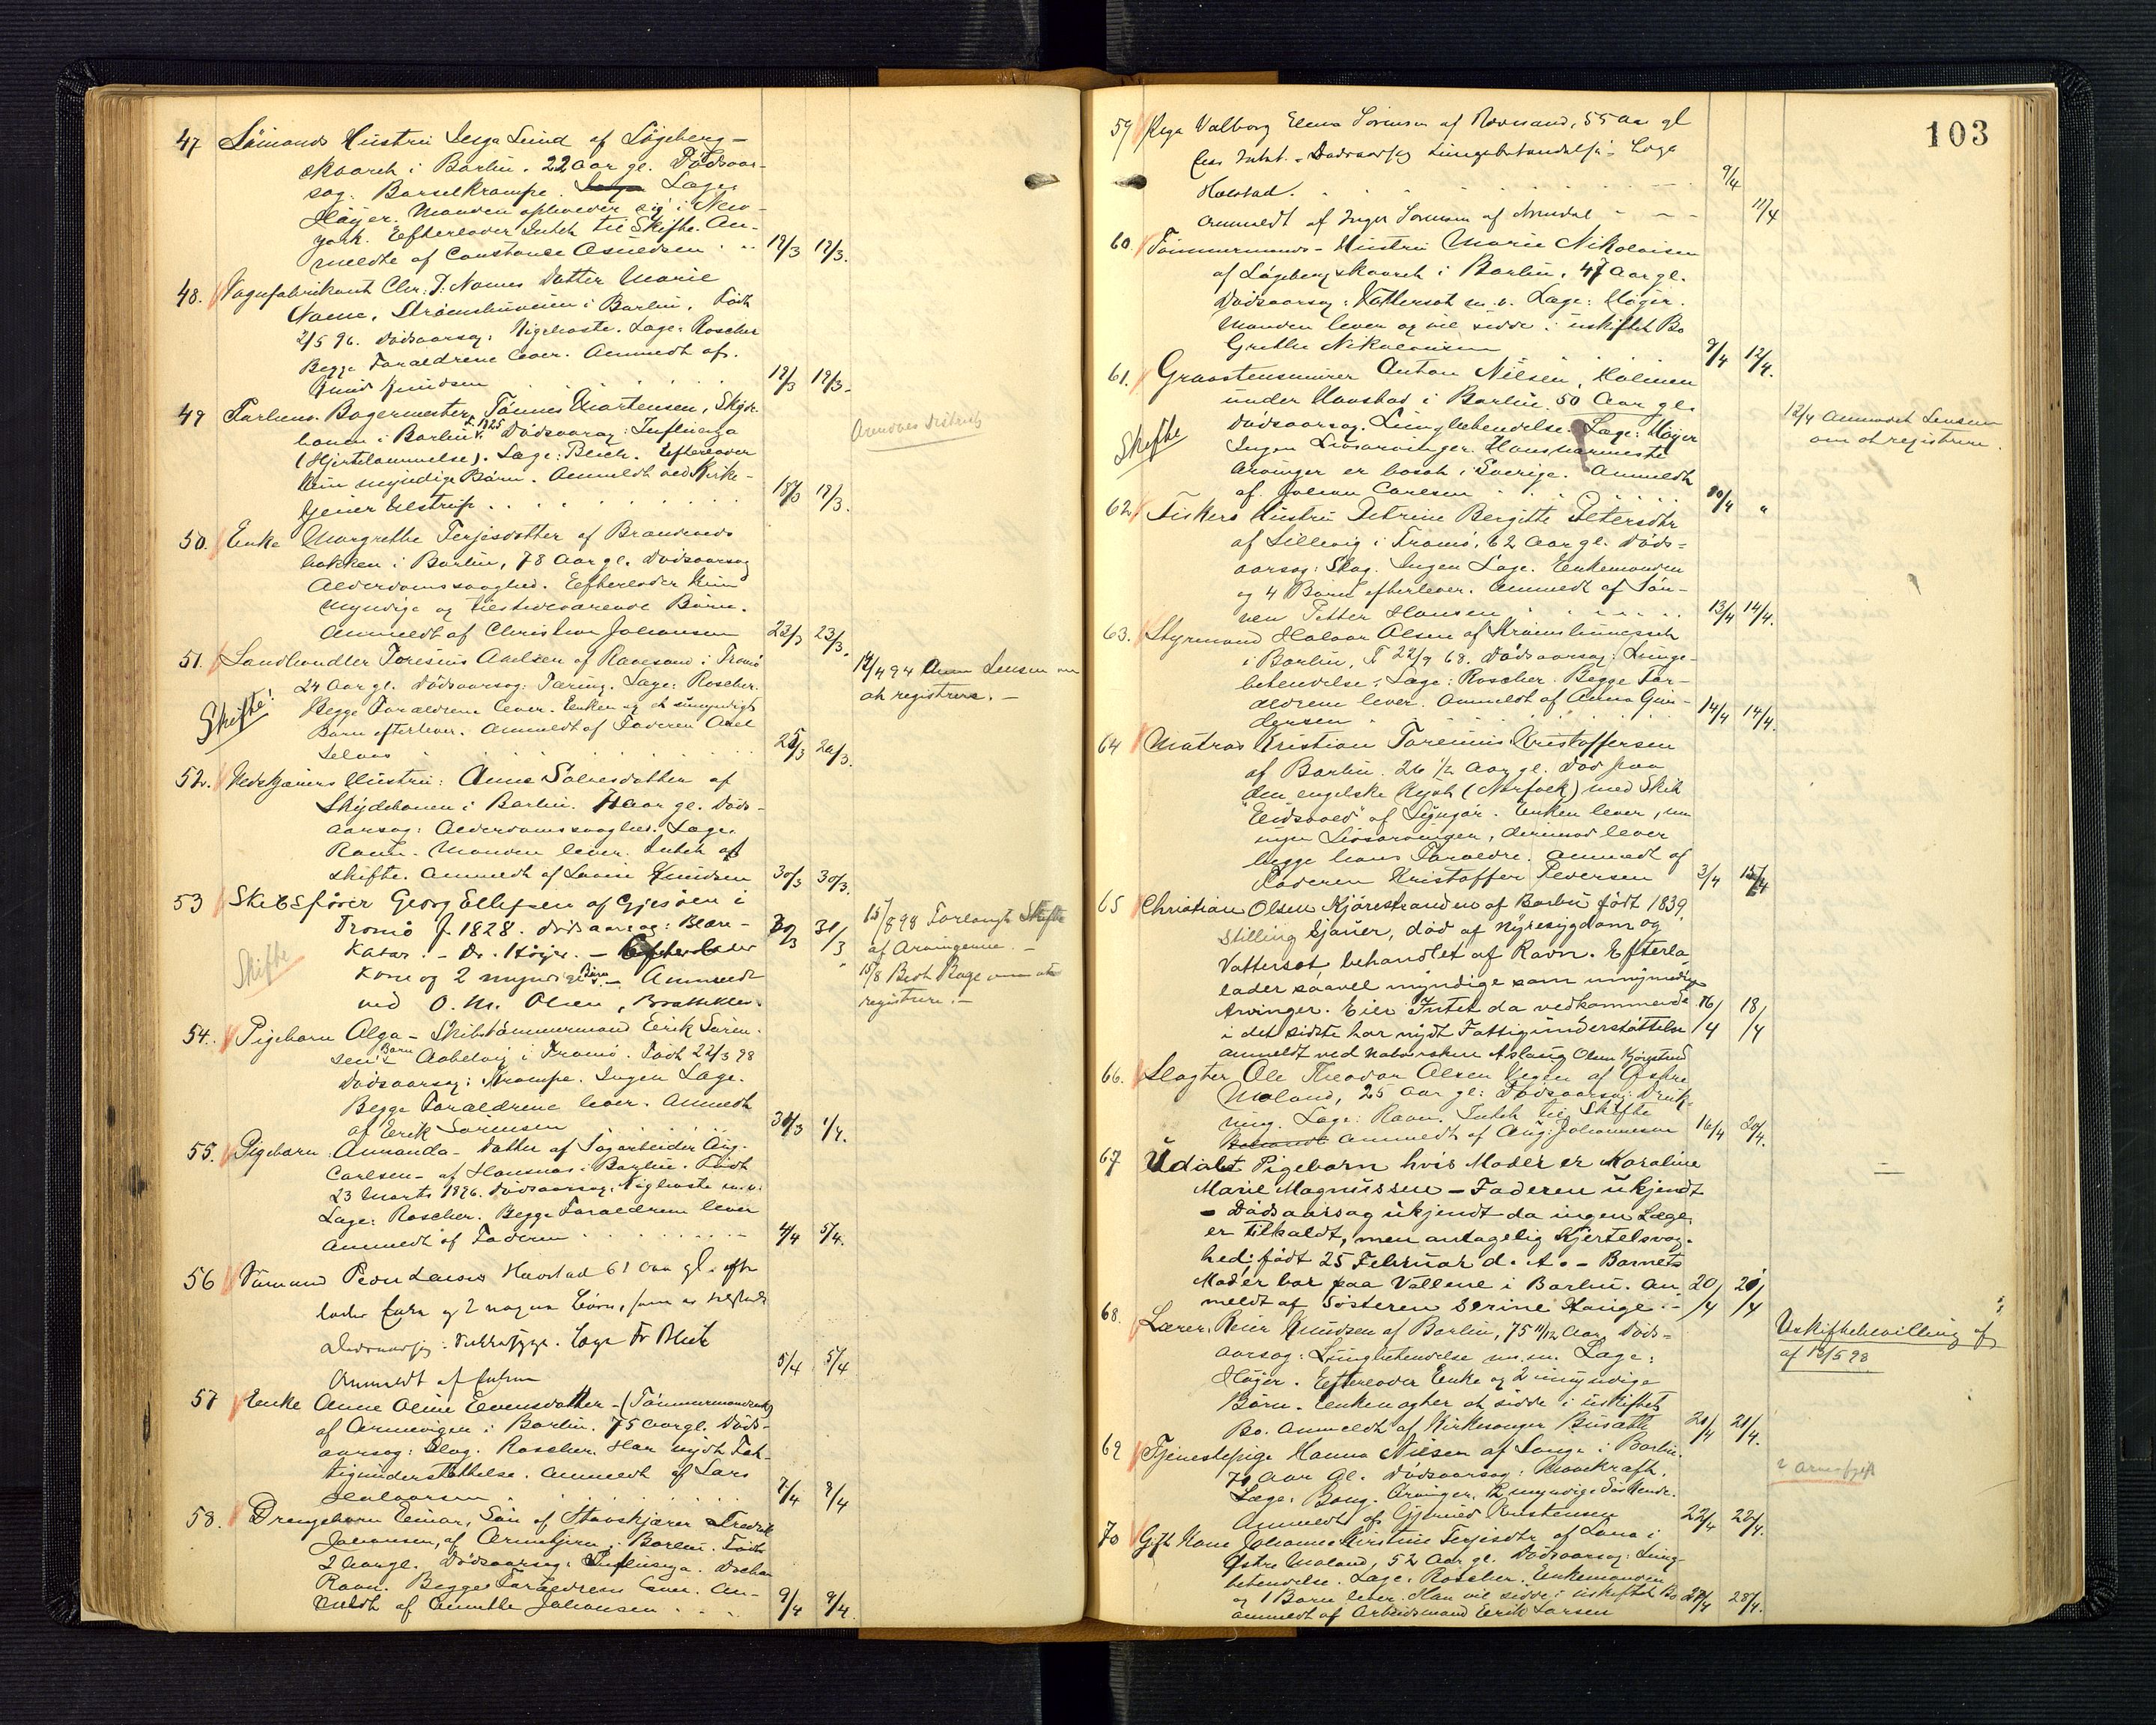 47 Sömands Hustru Inga Lund af Lögeberg-
skaaret i Barbu. 22 Aar gl. Dödsaar-
sag: Barselkrampe. Læge
Höyer. Manden opholder sig i New-
york. Efterlader Intet til Skifte. An-
meldte af Constance Asmedsen 19/3 19/3.
48. Vognfabrikant Chr. J. Names Datter Marie
Name, Strömsbuveien i Barbu. Född
2/5 96. Dödsaarsag: Kighoste. Læge: Roscher
Begge Foraeldrene lever. Anmeldt af
Knud Knudsen 19/3 19/3.
49 Forhenv. Bagermester Tönnes Mortensen, Skyt-
banen i Barbu f. 1825. Dödsaarsag: Influenza
(Hjertelammelse). Læge: Reich. Efterlader
kun myndige Börn. Anmeldt ved Kirke-
tjener Ulstrup 18/3 18/3.
Arendals distrikt
50. Enke Margrethe Terjesdatter af Brandveds
bakken i Barbu, 78 Aar gl. Dödsaarsag
Alderdomssvaghed. Efterlader kun
myndige og tilstedeværende Börn.
Anmeldt af Christian Johansen 23/3 23/3.
51. Landhandler Toresius Axelsen af Ravesand i Tromö
24 Aar gl. Dödsaarsag: Tæring. Læge: Roscher.
Skifte!
Begge Foraeldrene lever. Enken og et umyndigt
Barn efterlever. Anmeldt af Faderen Axel
26/3.
at registrere. —
52. Vedskjærers Hustru: Anne Salvesdatter af
Skydebanen i Barbu. Aar gl. Döds-
aarsag: Alderdomssvaghed. Læge.
Ravn. Manden lever. Intet at
skifte. Anmeldt af Lavine Knudsen 30/3 30/3.
53 Skibsförer Georg Ellefsen af Gjesöen i
Tromö f. 1828. Dödsaarsag: Blære-
Katar. - Dr. Höyer. - Efterlader
Kone og 2 myndige Börn. - Anmeldt
ved O. M. Olsen, Bratteklev. 30/3 31/3
Skifte
15/8 98 Forlangt Skifte
af Arvingerne. —
15/8 Bedt Bage om at
registrere. —
54. Pigebarn Olga - Skibstömmermand Eerik Sören-
sens Barn Aabelvig i Tromö. Född 22/3 98
Dödsaarsag: Krampe. Ingen Læge.
Begge Foraeldrene lever. Anmeldt
af Eerik Sörensen 31/3 1/4.
55. Pigebarn Amanda - Datter af Sagarbeider Aug.
Carlsen - af Hansnæs i Barbu. Född
23 Marts 1896. Dödsaarsag: Kighoste m.v.
Læge: Roscher. Begge Foraeldrene lever
Anmeldt af Faderen 4/4 5/4.
56 Sömand Peder Larsen Havstad 61 Aar gl. efter
lader Enke og 2 voxne Börn, som er tilstede
Læge Dr Reich
Anmeldt af Enken 5/4 5/4
57 Enke Anne Oline Evensdatter - (Tömmermandenke)
af Arnevigen i Barbu. 75 Aar gl. Döds-
aarsag: Slag. Roscher. Har nydt Fat-
tigunderstöttelse. Anmeldt af Lars
Halvorsen 7/4 9/4
58. Drengebarn Einar, Sön af Stuvskjærer Fredrik
Johansen, af Arnekjern i Barbu. Född
2 Aar gl. Dödsaarsag: Influenza. Doctor
Ravn. Begge Foraeldrene lever. An-
meldt af Anette Johansen 9/4 9/4.
103
59 Pige Valborg Elena Sörensen af Revesand, 55 Aar gl
Eier Intet. - Dødsaarsag Lungebetændelse - Læge
Havstad. 9/4
Anmeldt af Inger Sörensen af Arendal 11/4
60. Tömmermands - Hustru Marie Nikolaisen
af Lögebergskaaret i Barbu. 47 Aar gl.
Dödsaarsag: Vattersot m.v. Læge: Höyer.
Manden lever og vil sidde i uskiftet Bo
Grethe Nikolaisen 9/4 12/4.
61. Graastensmurer Anton Nilsen, Holmen
under Havstad i Barbu. 50 Aar gl.
Skifte
Dödsaarsag: Lungebetendelse. Læge: Höyer
Ingen Livsarvinger. Hans nærmeste
Arvinger er bosat i Sverige. Anmeldt
af Johan Carlsen 10/4 "
12/4 Anmodet Lensm
om at registrere.
62. Fiskers Hustru Petrine Bergitte Petersdtr
af Lillevig i Tromö, 62 Aar gl. Döds-
aarsag: Slag. Ingen Læge. Enkemanden
og 4 Börn efterlever. Anmeldt af Sön-
nen Petter Hansen 13/4 14/4.
63. Styrmand Halvor Olsen af Strömsbunesset
i Barbu, F 22/9 68. Dödsaarsag: Lunge-
betendelse. Læge: Roscher. Begge For-
ældrene lever. Anmeldt af Anna Gun-
dersen 14/4 14/4.
64 Matros Kristian Torenius Kristoffersen
af Barbu. 26 1/2 Aar gl. död paa
den engelske Kyst (Norfolk) med Skib
"Eidsvold" af Lyngör. Enken lever, men
ingen Livsarvinger, derimod lever
begge hans Foraeldre. Anmeldt af
Faderen Kristoffer Pedersen 3/4 15/4
65 Christian Olsen Kjörestranden af Barbu född 1839
stilling Ejaner, död af Nyresygdom og
Vattersot behandlet af Ravn. Efterla-
lader saavel myndige som umyndige
Arvinger. Eier Intet da vedkommende
i det sidste har nydt Fattigunderstöttelse 16/4 18/4
anmeldt ved Nabersken Aslaug Olsen Kjörestrand
66. Slagter Ole Theodor Olsen Vegen af Östre
Moland, 25 Aar gl: Dödsaarsag: Druk-
ning. Læge: Ravn. Intet til Skifte
Anmeldt af Aug: Johannesen 16/4 20/4.
67 Udöbt Pigebarn hvis Moder er Karoline
Marie Magnussen - Faderen ukjendt
- Dödsaarsag ukjendt da ingen Læge
er tilkaldt, men antagelig Kjertelsvag-
hed. född 25 Februar d. A. - Barnets
Moder bor paa Vollene i Barbu. An-
meldt af Sösteren Serine Hauge. - 20/4 20/4
68. Lærer Reier Knudsen af Barbu, 75 11/12 Aar, Döds-
aarsag: Lungbetendelse m.m. Læge:
Höyer. Efterlader Enke og 2 umyndige
Börn. Enken agter at sidde i uskiftet
Bo. Anmeldt af Kirkesanger Busæth 21/4 21/4.
Uskiftebevilling af
af 13/5 98
69 Tjenestepige Hanna Nilsen af Songe i Barbu.
70 Aar Gl. Dödsaarsag: Mavekræft.
Læge: Bong. Arvinger, 2 myndige Söskende.
Anmeldt af Gjerund Kristensen 22/4 22/4.
70 Gift Kone Johanne Kirstine Terjesdtr af Lona i
Östre Moland, 52 Aar gl. Dödsaarsag: Lung-
betendelse. Læge: Roscher. Enkemanden
og 1 Barn lever. Han vil sidde i uskiftet Bo
anmeldt af Arbeidsmand Eerik Larsen 28/4 28/4.